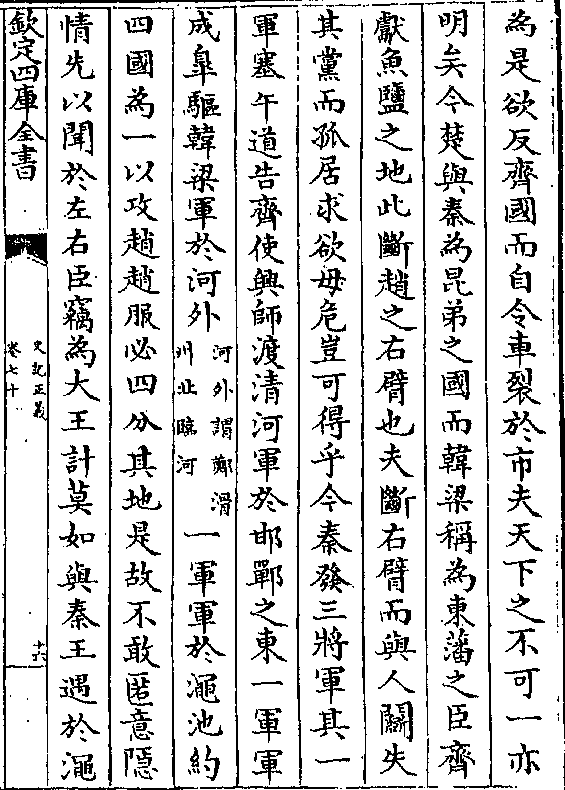 為是欲反齊國而自令車裂於市夫天下之不可一亦
明矣今楚與秦為昆弟之國而韓梁稱為東藩之臣齊
獻魚鹽之地此斷趙之右臂也夫斷右臂而與人鬭失
其黨而孤居求欲毋危豈可得乎今秦發三將軍其一
軍塞午道告齊使興師渡清河軍於邯鄲之東一軍軍
成臯驅韓梁軍於河外河外謂鄭滑州北臨河一軍軍於澠池約
四國為一以攻趙趙服必四分其地是故不敢匿意隱
情先以聞於左右臣竊為大王計莫如與秦王遇於澠
欽定四庫全書
史記正義
卷七十
十六